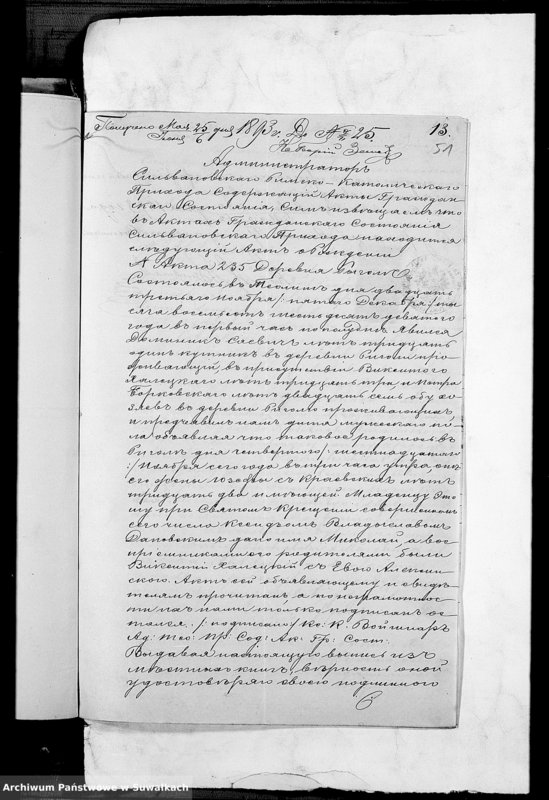 Получено Мая 25 дня 1893 г. Дѣ № 25. 13.
Іюня 6 51
Администраторъ
Сильвановскаго Римско-Католическаго
Прихода Содержащій Акты Граждан-
скаго Состоянія, Симъ извѣщаемъ что
въ Актахъ Гражданскаго Состоянія
Сильвановскаго Прихода находится
слѣдующій Актъ о рожденіи
№ Акта 235 Деревня
Состоялось въ дня двадцать
третьяго Ноября /: пятаго Декабря :/ ты-
сяча восемьсотъ шестьдесятъ девятаго
года въ первый часъ по полудни. Явился
Доминикъ лѣтъ тридцать
одинъ въ деревни про-
живающій, въ присутствіи Викентего
Халецкаго лѣтъ тридцать три и Петра
Борковскаго лѣтъ двадцать семь обу хо-
зяевъ въ деревни проживающихъ,
и предъявилъ намъ дитя мужескаго по-
ла объявляя что таковое родилось въ
дня четвертого /: шестнадцатаго
:/ Ноября сего года въ три часа утра, отъ
его жены Юзефы съ лѣтъ
тридцать два и имѣющей. Младенцу Это-
му при Святомъ Крещеніи совершенномъ
сего числа Ксендзомъ Владославомъ
дано имя Миколай, а вос-
пріемниками его родителями были
Викентій Халецкій съ Евою
Актъ сей объявляющему и свидѣ-
телямъ прочитанъ, а по неграмотнос-
ти ихъ нами только подписанъ ос-
тался. /: подписано :/ Кс: К. Войшнаръ
Ад: Пр: Сод: Ак: Гр: Сост:
Выдавая настоящую выпись изъ
мѣстныхъ книгъ, вѣрность оной
удостовѣряю своею подлинного
Archiwum Państwowe w Suwałkach